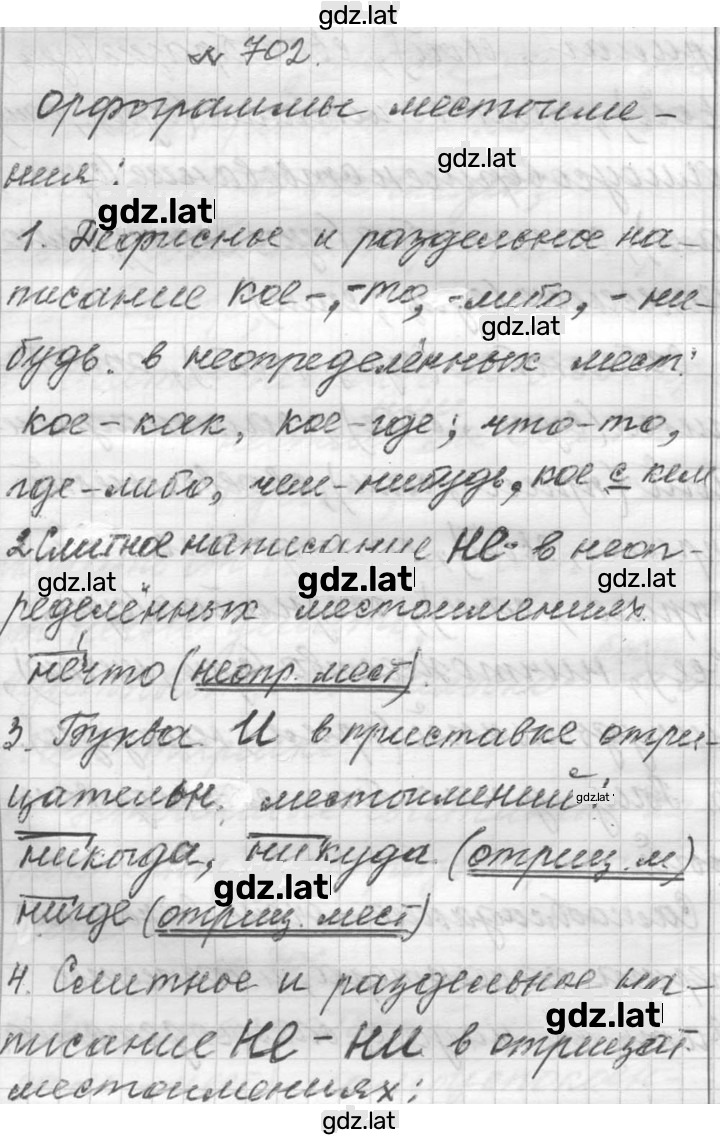 gdz.lat
№ 702.
Орфограммы местоиме-
gdz.lat
ния:
gdz.lat
1. Дефисное и раздельное на-
писание кое-, -то, -либо, - ни-
gdz.lat
будь. в неопределённых мест:
кое-как, кое-где; что-то,
где-либо, чем-нибудь, кое с кем
2. Слитное написание НЕ- в неоп-
gdz.lat gdz.lat gdz.lat
ределённых местоимениях.
нечто (неопр. мест).
3. Буква И в приставке отри-
цательн. местоимений:
gdz.lat
никогда, никуда (отриц. м)
gdz.lat
нигде (отриц. мест)
4. Слитное и раздельное на-
gdz.lat
писание НЕ - НИ в отрицат.
местоимениях:
gdz.lat